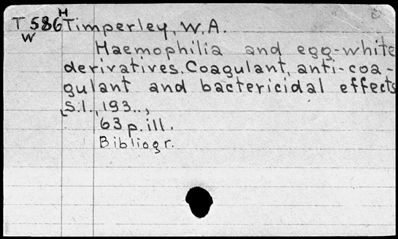 T 586 H Timperley, W.A.
W
Haemophilia and egg-white
derivatives. Coagulant, anti-coa-
gulant and bactericidal effects
S.l., 193..,
63 p. ill.
Bibliogr.